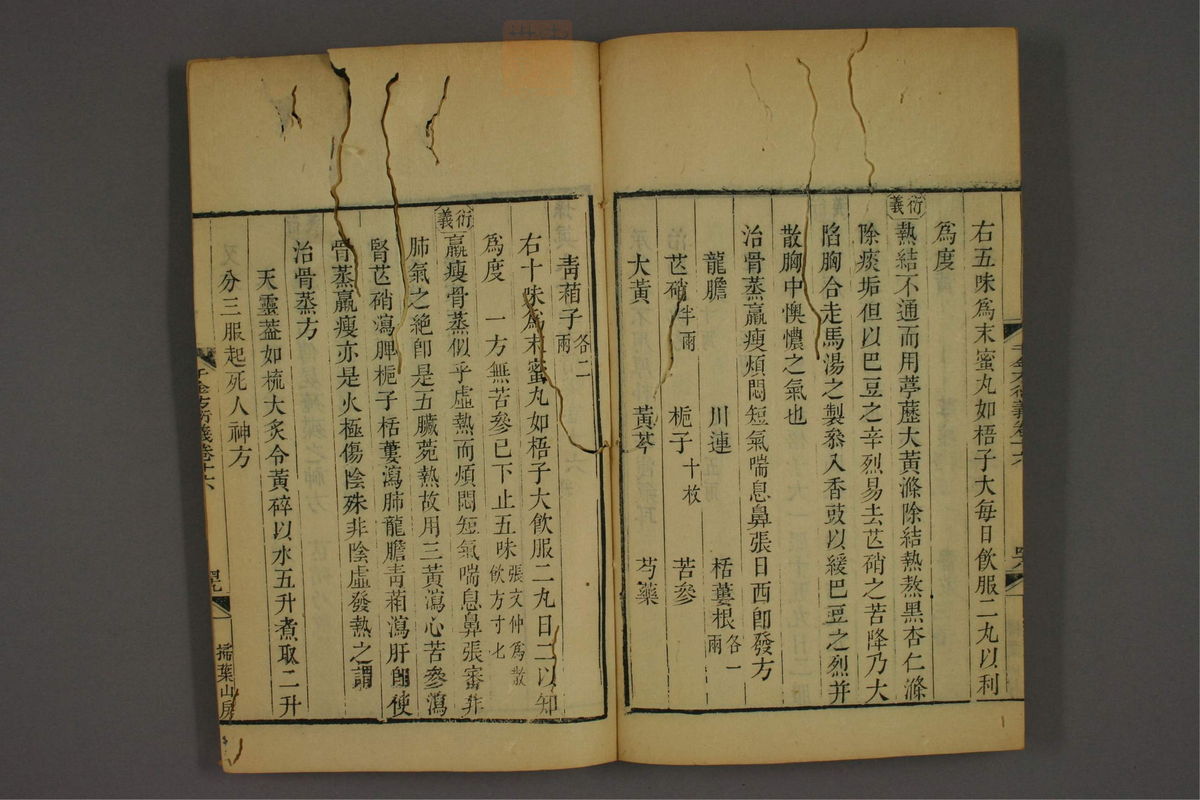 右五味爲末蜜丸如梧子大每日飲服二丸以利
爲度
衍義
熱結不通而用葶藶大黃滌除結熱熬黑杏仁滌
除痰垢但以巴豆之辛烈易去芒硝之苦降乃大
陷胸合走馬湯之製叅入香豉以緩巴豆之烈幷
散胸中懊憹之氣也
治骨蒸羸瘦煩悶短氣喘息鼻張日西卽發方
龍膽 川連 栝蔞根各一兩
芒硝半兩 梔子十枚 苦參
大黃 黃芩 芍藥
青葙子各二兩
右十味爲末蜜丸如梧子大飲服二丸日二以知
爲度 一方無苦參已下止五味張文仲爲散飲方寸匕
衍義
羸瘦骨蒸似乎虛熱而煩悶短氣喘息鼻張審非
肺氣之絶卽是五臟菀熱故用三黃瀉心苦參瀉
腎芒硝瀉脾梔子栝蔞瀉肺龍膽青葙瀉肝卽使
骨蒸羸瘦亦是火極傷陰殊非陰虛發熱之謂
治骨蒸方
天靈蓋如梳大炙令黃碎以水五升煮取二升
分三服起死人神方
千金方衍義卷十六
掃葉山房